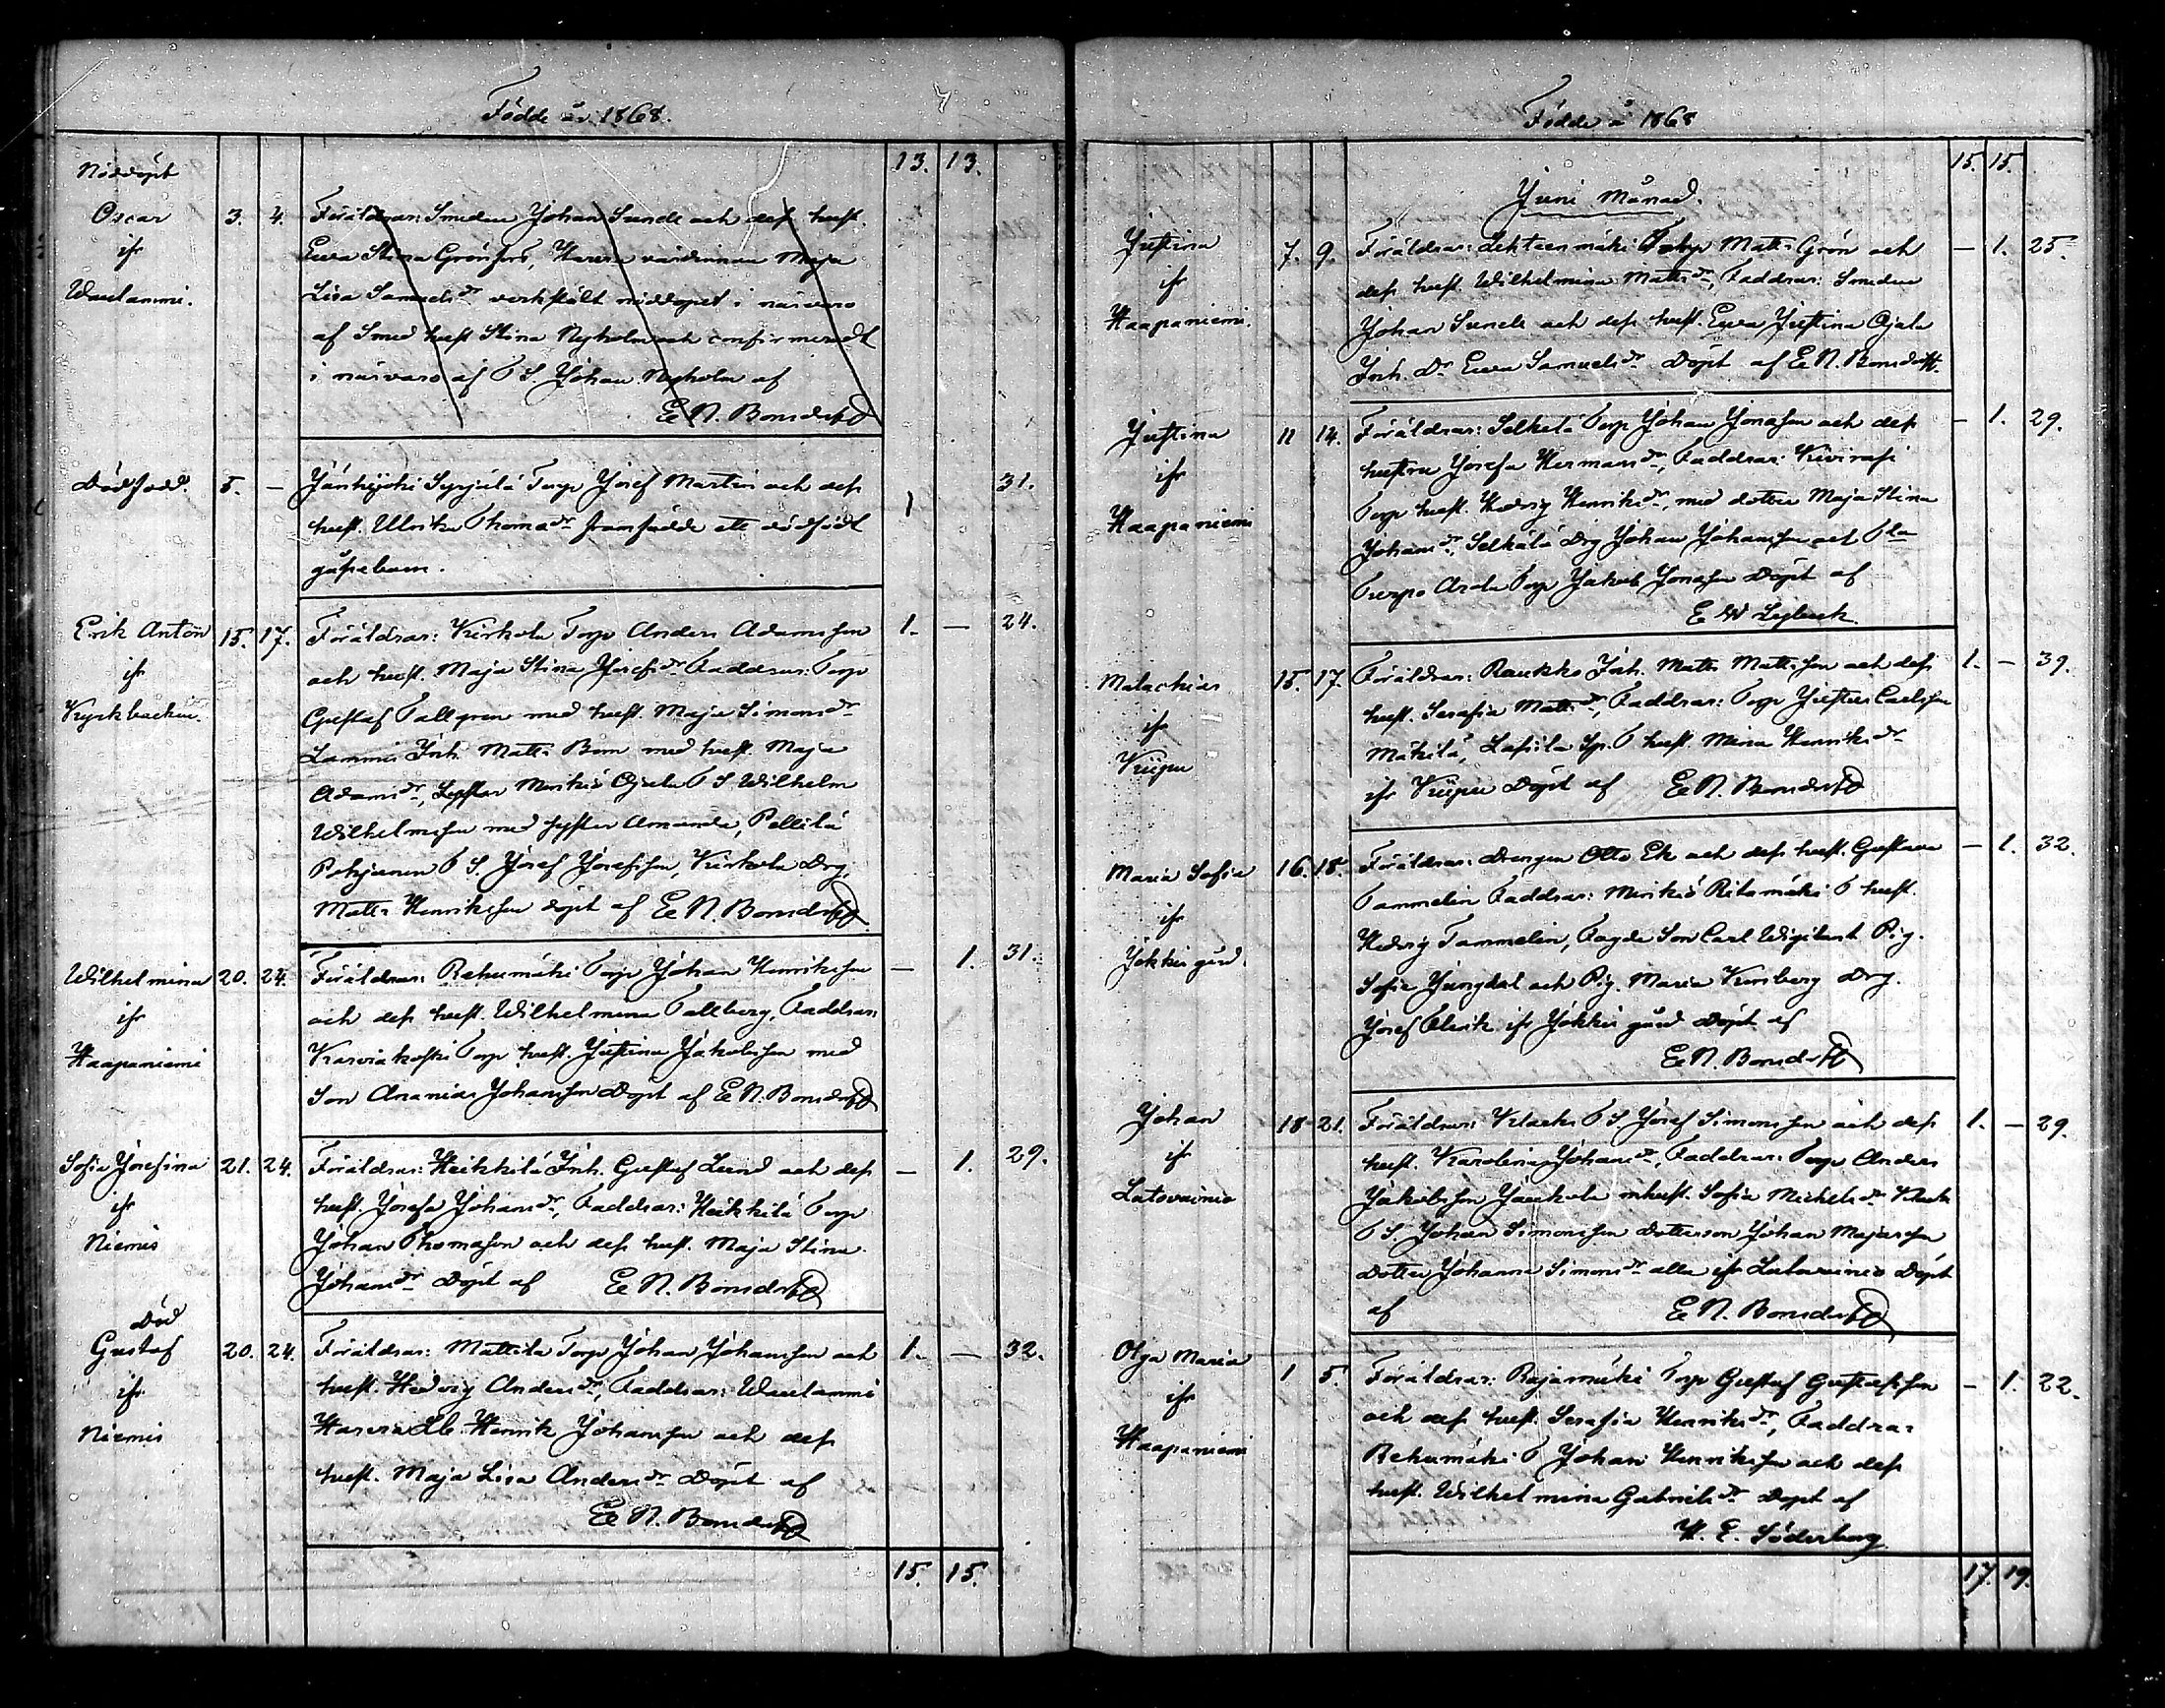 Födde år 1868.
13. 13.
Nöddöpt
Oscar ifr Waulammi.
3. 4. Föräldrar: Smeden Johan Sunde och dess hust.
Ewa Stina Grönfors, Harva värdinnan Maja
Lisa Samuelsdr verkstält nöddopet i närvaro
af Smed hust Stina Nyholm och confirmeradt
i närvaro af T S. Johan Nyholm af
E N. Bonsdorff
Dödfödd. 5. — Jänhijoki Syrjälä Torp Josef Martin och dess 1 31.
hust. Ulrika Thomadr framfödde ett dödfödt
gossebarn.
Erik Anton ifr Kyrkbacken.
15. 17. Föräldrar: Kirkola Torp Anders Adamsson 1. — 24.
och hust. Maja Stina Josefsdr Faddrar: Torp
Gustaf Tallgren med hust. Maja Simonsdr
Lammi Inh. Matts Bom med hust. Maja
Adamsdr, Ojala T S Wilhelm
Wilhelmsson med syster Amanda, Pellilä
Pohjanen T S. Josef Josefsson, Kirkola Drg.
Matts Henriksson döpt af E N. Bonsdorff
Wilhelmina ifr Haapaniemi
20. 24. Föräldrar: Rehumäki Torp Johan Henriksson — 1. 31.
och dess hust. Wilhelmina Tallberg, Faddrar:
Karviakoski Torp hust. Justina Jakobsson med
Son Ananias Johansson Döpt af E N. Bonsdorff
Sofia Josefina ifr Niemis
21. 24. Föräldrar: Heikkilä Inh. Gustaf Lund och dess — 1. 29.
hust. Josefa Johansdr, Faddrar: Heikkilä Torp
Johan Thomasson och dess hust. Maja Stina
Johansdr Döpt af E N. Bonsdorff
Död
Gustaf ifr Niemis
20. 24. Föräldrar: Mattila Torp Johan Johansson och 1. — 32.
hust. Hedvig Andersdr, Faddrar: Waulammi
Harva Henrik Johansson och dess
hust. Maja Lisa Andersdr Döpt af
E N. Bonsdorff
15. 15.
Födde å 1868
15. 15.
Juni Månad.
Justina ifr Haapaniemi.
7. 9. Föräldrar: Lehteenmäki Torp Matts Grön och — 1. 25.
dess hust. Wilhelmina Mattsdr, Faddrar: Smeden
Johan Sunde och dess hust. Ewa Justina Ojala
Inh. Dr Ewa Samuelsdr Döpt af E N. Bonsdorff.
Justina ifr Haapaniemi
11 14. Föräldrar: Selkälä Torp Johan Jonasson och dess — 1. 29.
hustru Josefa Hermansdr, Faddrar: Kivirasi
Torp hust. Hedvig Henriksdr, med dotter Maja Stina
Johansdr, Selkälä Drg Johan Johansson och
Torp Jakob Jonasson Döpt af
E W Legback
Malachias ifr Küpu
15. 17. Föräldrar: Raukko Inh. Matts Mattsson och dess 1. — 39.
hust. Serafia Mattsdr, Faddrar: Torp Justus Carlsson
Mäkilä, Lassila Sp. T hust. Mina Henriksdr
ifr Küpu Döpt af E N. Bonsdorff
Maria Sofia ifr Jokkis gård.
16. 18. Föräldrar: Drengen Otto Ek och dess hust. Gustava — 1. 32.
Tammelin Faddrar: Minkiö Ritamäki T hust.
Hedvig Tammelin, Fogde Son Carl Wigilant Pig.
Sofia Ljungdal och Pig. Maria Kinsberg Drg.
Josef Flink ifr Jokkis gård Döpt af
E N. Bonsdorff
Johan ifr Latovainio
18 21. Föräldrar: Klacki T S. Josef Simonsson och dess 1. — 29.
hust. Karolina Johansdr, Faddrar: Torp Anders
Jakobsson Jaukola mhust. Sofia Michelsdr
T S. Johan Simonsson Dotterson Johan Majasson
Dotter Johanna Simonsdr alla ifr Latovainio Döpt
af E N. Bonsdorff
Olga Maria ifr Haapaniemi
1 5. Föräldrar: Rajamäki Torp Gustaf Gustafsson — 1. 22.
och dess hust. Serafia Henriksdr, Faddrar
Rehumäki T Johan Henriksson och dess
hust. Wilhelmina Gabrielsdr Döpt af
H. E. Söderberg
17. 19.